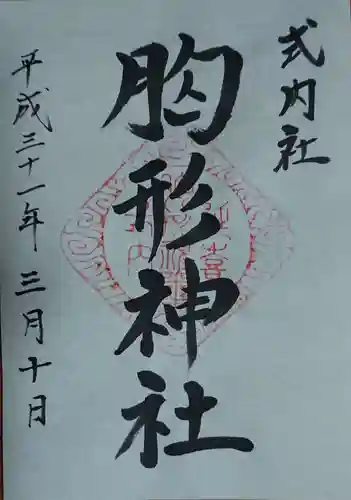 式内社
胸形神社
平成三十一年三月十日